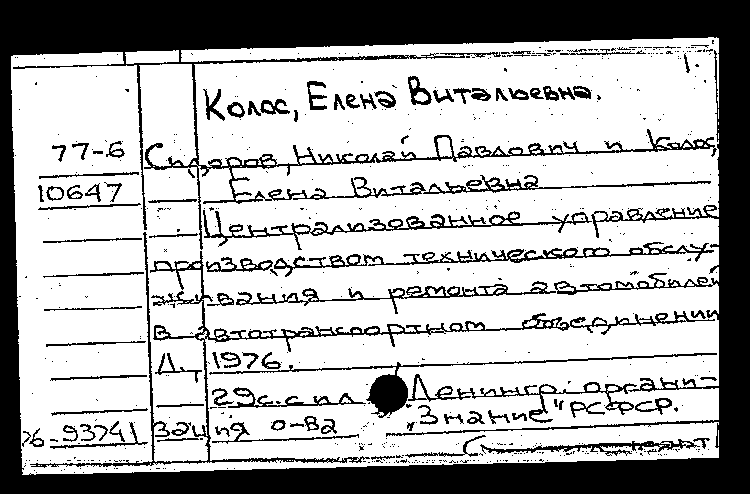 1.
Колос, Елена Витальевна.
77-6 Сидоров, Николай Павлович и Колос,
10647 Елена Витальевна
Централизованное управление
производством технического обслу-
живания и ремонта автомобилей
в автотранспортном объединении
Л., 1976.
29с. с ил Ленингр. органи-
76-93741 зация о-ва „Знание" РСФСР.